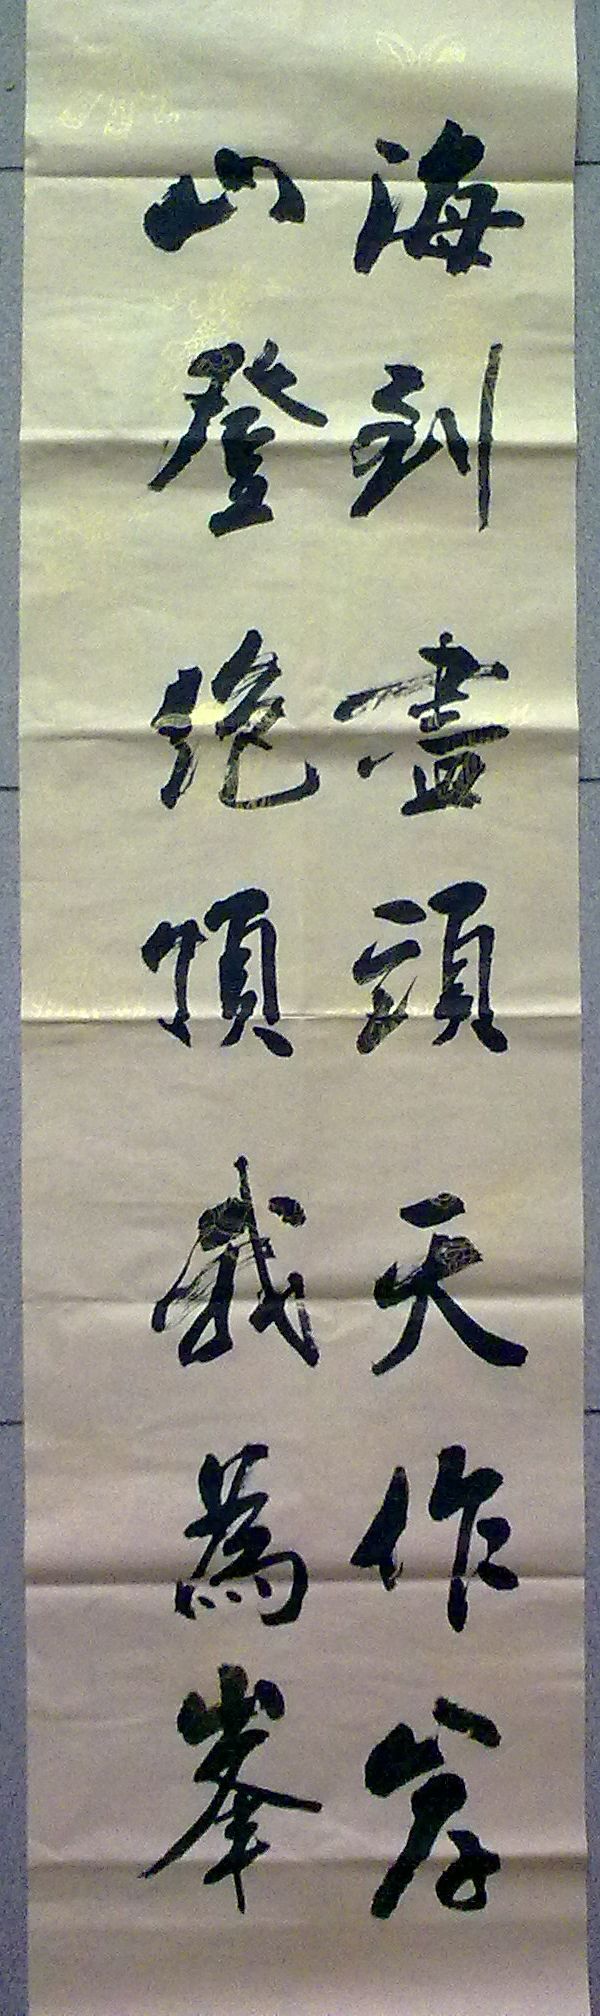 海到盡頭天作岸
山登絶頂我為峯